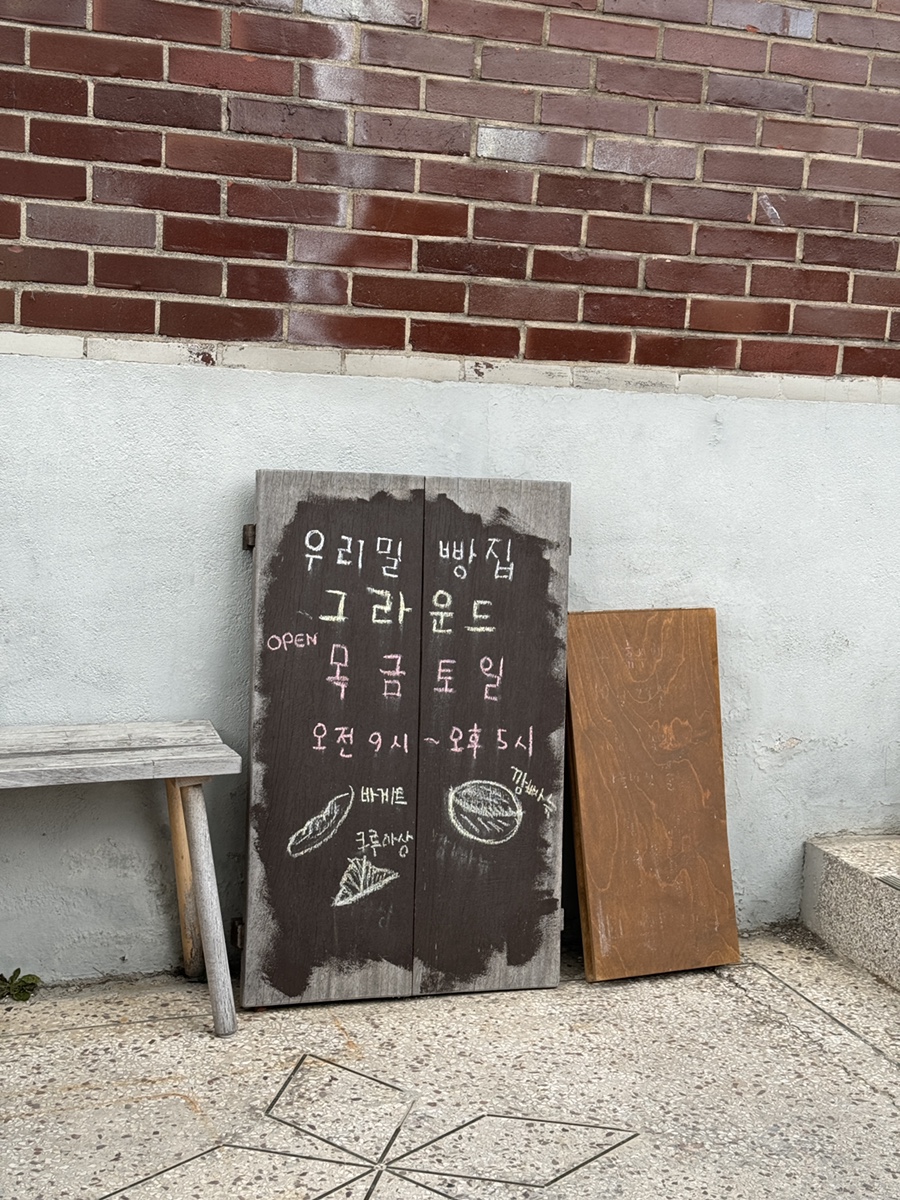 우리밀 빵집
그라운드
OPEN
목 금 토 일
오전 9시 ~ 오후 5시
바게트
깜빠뉴
크루아상